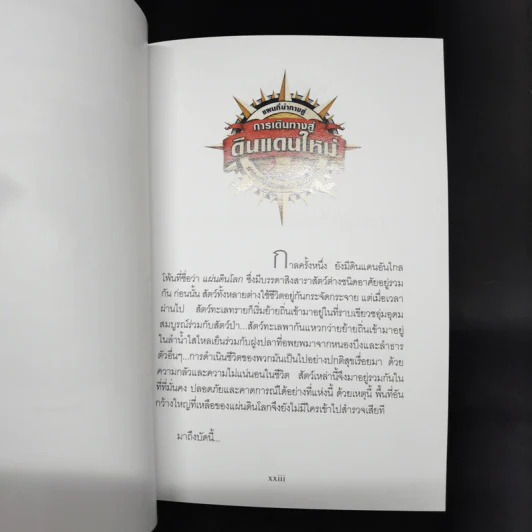 แผนที่นำทางสู่
การเดินทางสู่
ดินแดนใหม่
กาลครั้งหนึ่ง ยังมีดินแดนอันไกล
โพ้นที่ชื่อว่า แผ่นดินโลก ซึ่งมีบรรดาสิงสาราสัตว์ต่างชนิดอาศัยอยู่รวม
กัน ก่อนนั้น สัตว์ทั้งหลายต่างใช้ชีวิตอยู่กันกระจัดกระจาย แต่เมื่อเวลา
ผ่านไป สัตว์ทะเลทรายก็เริ่มย้ายถิ่นเข้ามาอยู่ในที่ราบเขียวชอุ่มอุดม
สมบูรณ์ร่วมกับสัตว์ป่า...สัตว์ทะเลพากันแหวกว่ายย้ายถิ่นเข้ามาอยู่
ในลำน้ำใสไหลเย็นร่วมกับฝูงปลาที่อพยพมาจากหนองบึงและลำธาร
ตัวอื่นๆ...การดำเนินชีวิตของพวกมันเป็นไปอย่างปกติสุขเรื่อยมา ด้วย
ความกลัวและความไม่แน่นอนในชีวิต สัตว์เหล่านี้จึงมาอยู่รวมกันใน
ที่ที่มั่นคง ปลอดภัยและคาดการณ์ได้อย่างที่แห่งนี้ ด้วยเหตุนี้ พื้นที่อัน
กว้างใหญ่ที่เหลือของแผ่นดินโลกจึงยังไม่มีใครเข้าไปสำรวจเสียที
มาถึงบัดนี้...
xxiii